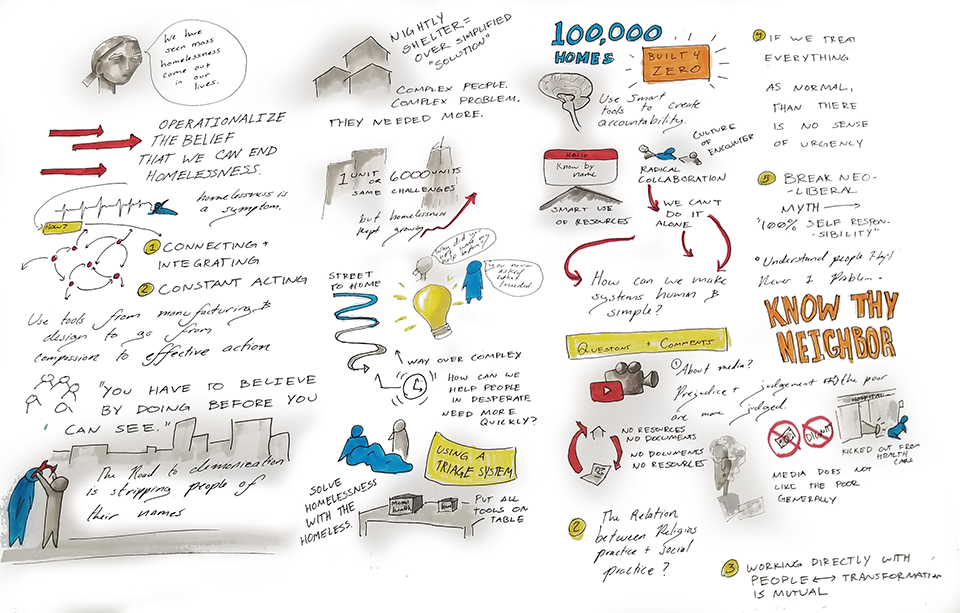 We have
seen mass
homelessness
come out
in our
lives.
OPERATIONALIZE
THE BELIEF
THAT WE CAN END
HOMELESSNESS.
homelessness is
a symptom.
HOW?
1 CONNECTING +
INTEGRATING
2 CONSTANT ACTING
Use tools from manufacturing &
design to go from
compassion to effective action
"YOU HAVE TO BELIEVE
BY DOING BEFORE YOU
CAN SEE."
The Road to demonization
is stripping people of
their names
NIGHTLY
SHELTER =
OVER SIMPLIFIED
"SOLUTION"
COMPLEX PEOPLE.
COMPLEX PROBLEM.
THEY NEEDED MORE.
1 UNIT 6000 UNITS
OR
SAME CHALLENGES
but homelessness
kept growing
Why did you
help before?
You never
asked
what I
needed.
STREET
TO HOME
WAY OVER COMPLEX
HOW CAN WE
HELP PEOPLE
IN DESPERATE
NEED MORE
QUICKLY?
USING A
TRIAGE SYSTEM
SOLVE
HOMELESSNESS
WITH THE
HOMELESS.
Mental
health
PUT ALL
TOOLS ON
TABLE
100,000
HOMES
BUILT 4
ZERO
Use Smart
tools to create
accountability.
Hello
Know by
name
CULTURE OF
ENCOUNTER
RADICAL
COLLABORATION
SMART USE
OF RESOURCES
WE CAN'T
DO IT
ALONE
How can we make
systems human &
simple?
QUESTONS + COMMENTS
1 About media?
Prejudice + judgement the poor
are more judged.
NO RESOURCES
NO DOCUMENTS
NO DOCUMENTS
NO RESOURCES
2 The Relation
between Religios
practice + social
practice?
4 IF WE TREAT
EVERYTHING
AS NORMAL,
THAN THERE
IS NO SENSE
OF URGENCY
5 BREAK NEO-
LIBERAL
MYTH
"100% SELF RESPON-
SIBILITY"
Understand people 1 by 1
Never 1 Problem.
KNOW THY
NEIGHBOR
HOSPITAL
DIGNITY
KICKED OUT FROM
HEALTH
CARE
MEDIA DOES NOT
LIKE THE POOR
GENERALLY
3 WORKING DIRECTLY WITH
PEOPLE TRANSFORMATION
IS MUTUAL